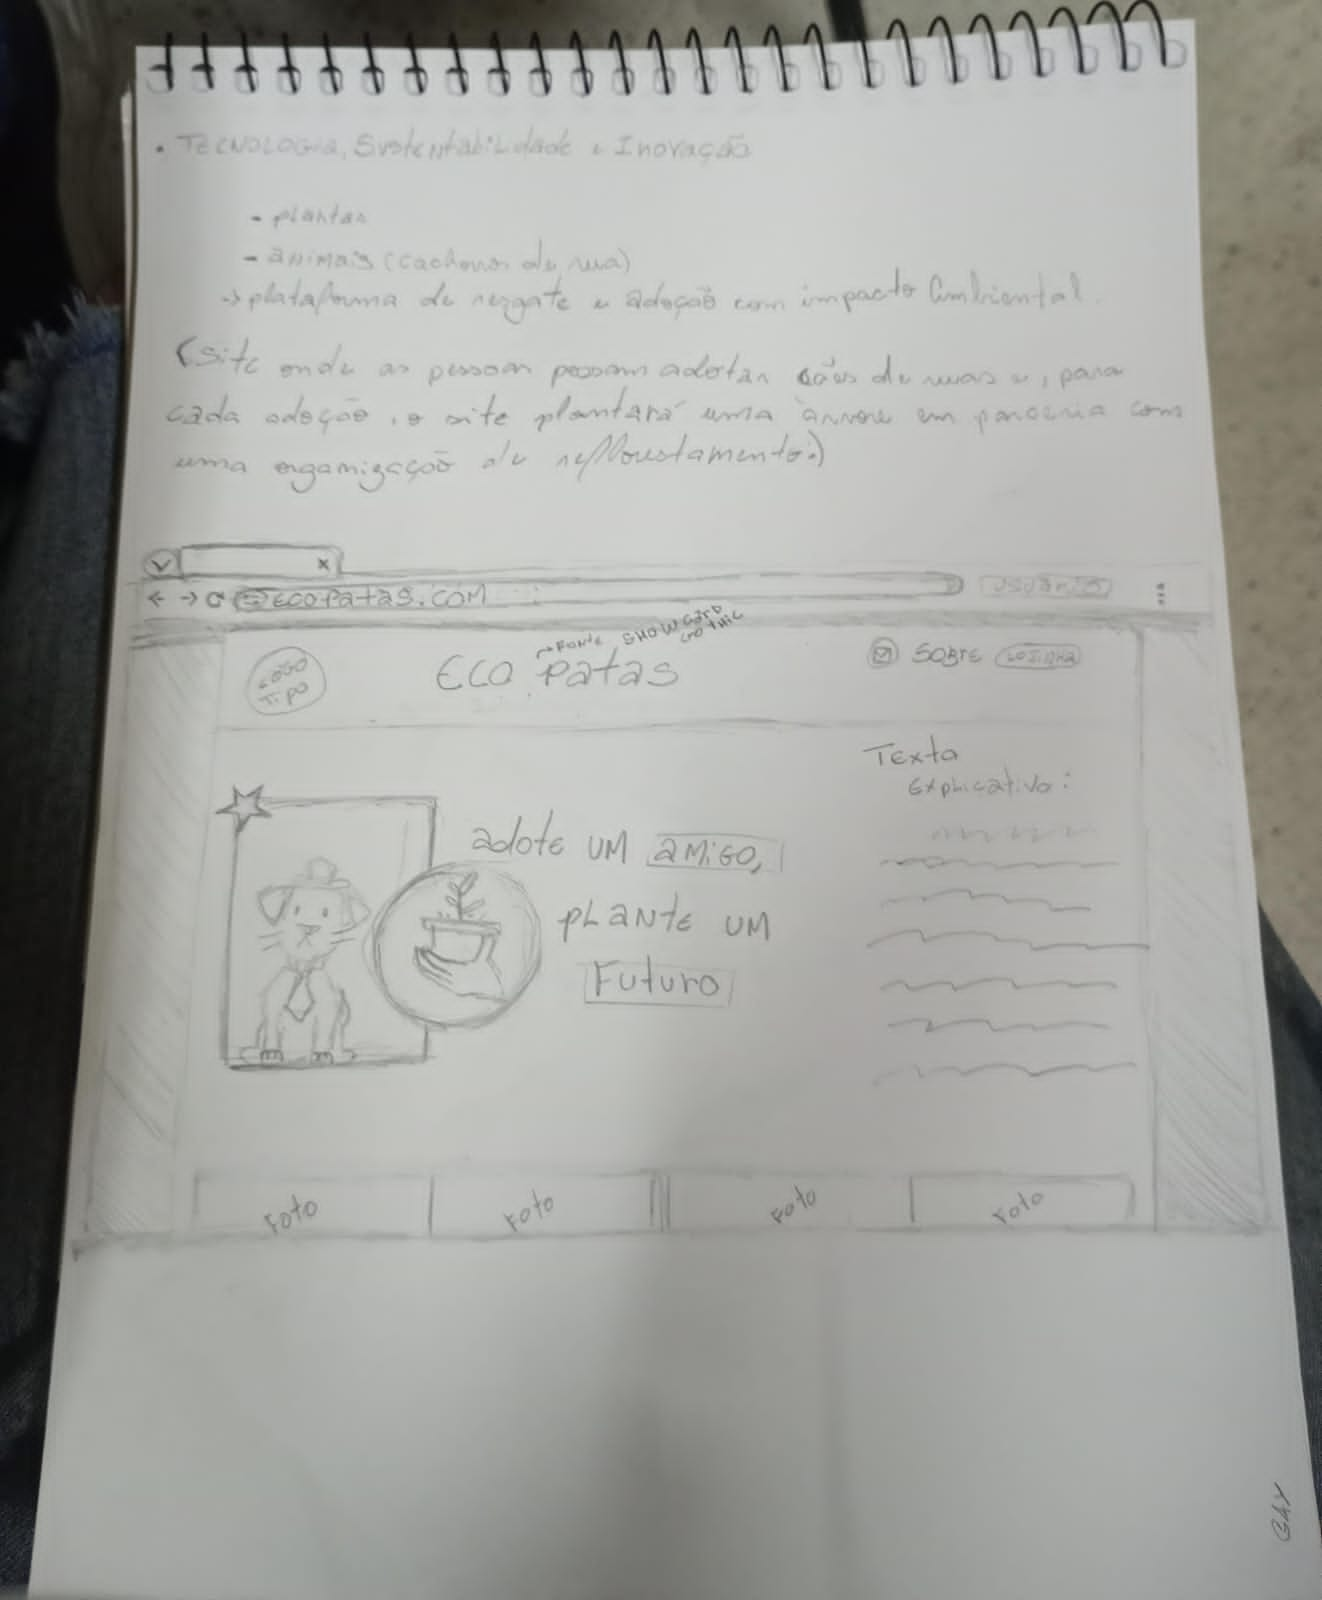 • TECNOLOGIA, SustentabiLidade e Inovação
- plantas
- animais (cachorros de rua)
→ plataforma de resgate e adoção com impacto Ambiental.
(site onde as pessoas possam adotar cães de ruas e, para
cada adoção, o site plantará uma árvore em parceria com
uma organização de reflorestamento.)
x
ECOPatas.COM
USUÁRIO
→ FONTE SHOWCARD
GOTHIC
LOGO
TIPO
ECO Patas
SOBRE
LOJINHA
Texto
Explicativo:
adote UM amiGO,
pLANte UM
Futuro
Foto
Foto
Foto
Foto
GAY